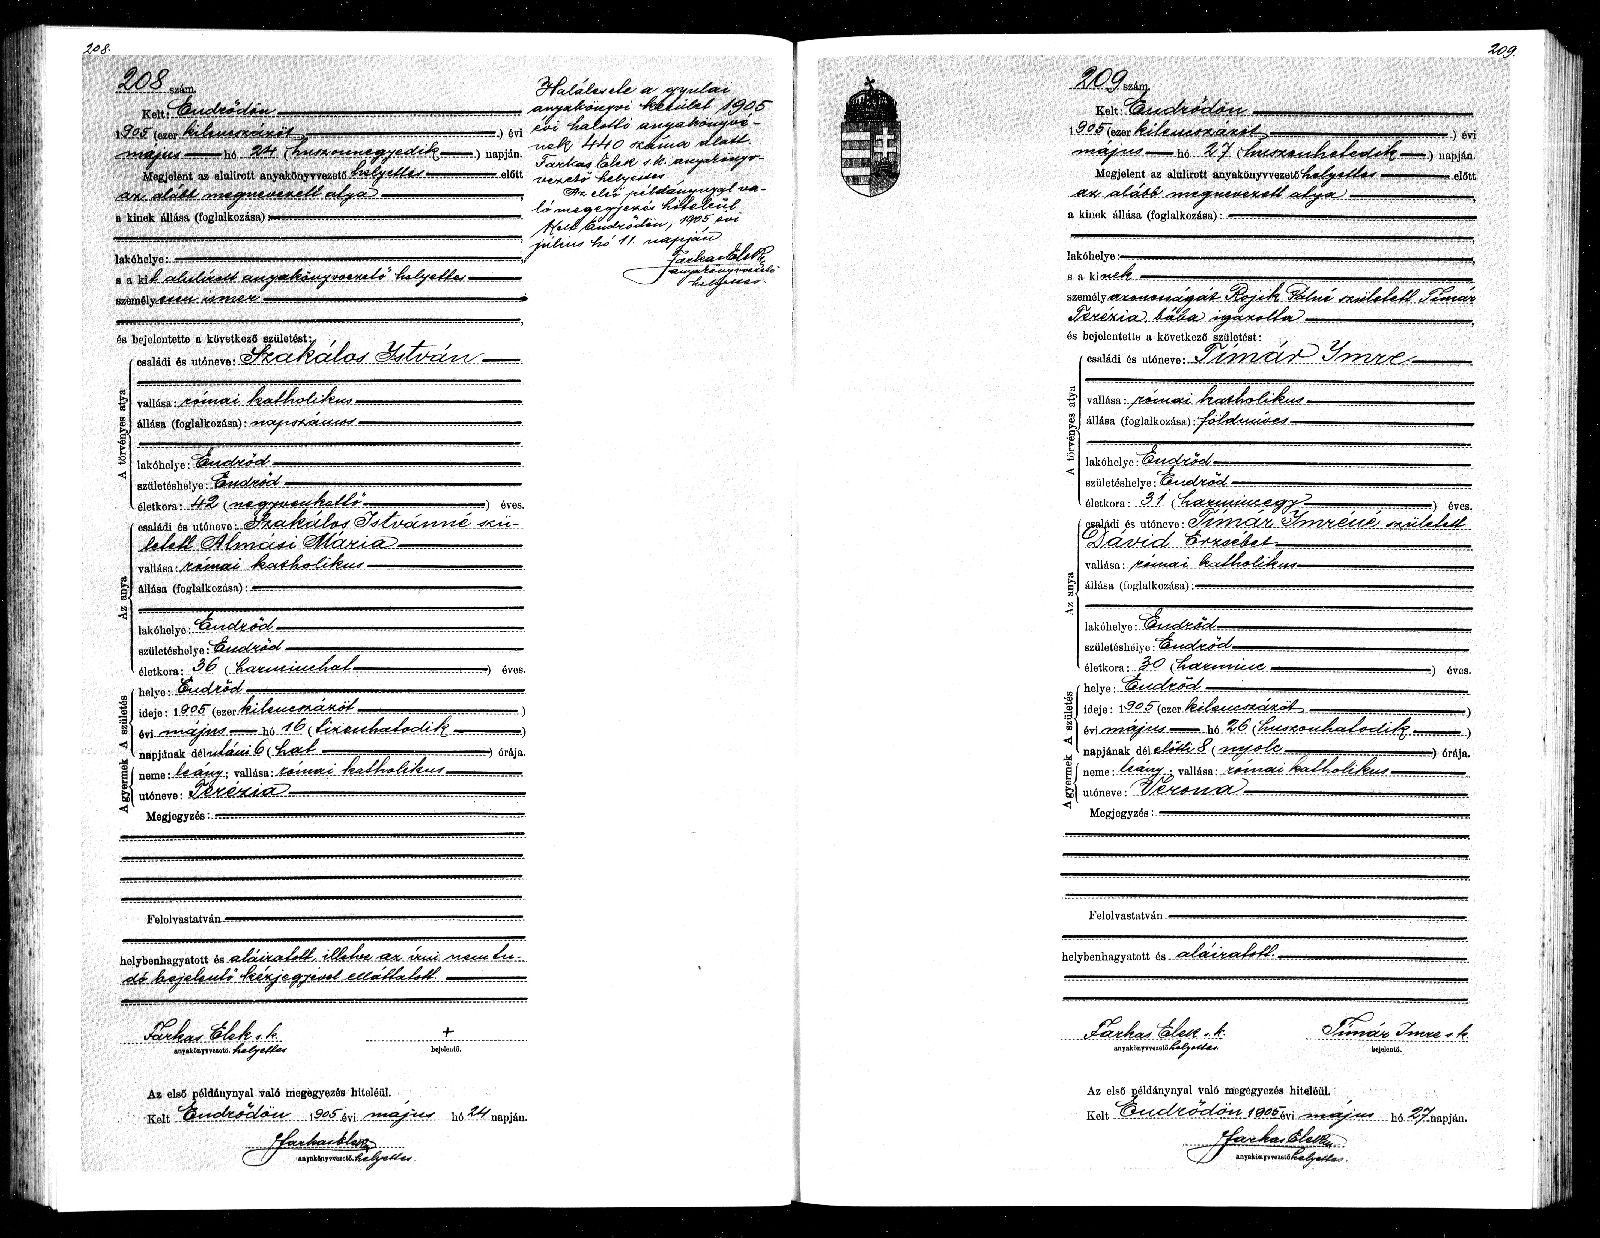 208.
208 szám.
Kelt: Endrődön
1905 (ezer kilenczszázöt) évi
május hó 24 (huszonnegyedik) napján.
Megjelent az alulirott anyakönyvvezető helyettes előtt
az alább megnevezett atya
a kinek állása (foglalkozása):
lakóhelye:
s a kit alulírott anyakönyvvezető helyettes
személyesen ismer
és bejelentette a következő születést:
A törvényes atya
családi és utóneve: Szakálos István
vallása: római katholikus
állása (foglalkozása): napszámos
lakóhelye: Endrőd
születéshelye: Endrőd
életkora: 42 (negyvenkettő) éves.
Az anya
családi és utóneve: Szakálos Istvánné szü-
letett Almási Mária
vallása: római katholikus
állása (foglalkozása):
lakóhelye: Endrőd
születéshelye: Endrőd
életkora: 36 (harminchat) éves.
A születés
helye: Endrőd
ideje: 1905 (ezer kilenczszázöt)
évi május hó 16 (tizenhatodik)
napjának délutáni 6 (hat) órája.
A gyermek
neme: leány; vallása: római katholikus
utóneve: Terézia
Megjegyzés:
Felolvastatván
helybenhagyatott és aláíratott, illetve az írni nem tu-
dó bejelentő kézjegyével elláttatott.
Farkas Elek s.k. +
anyakönyvvezető. helyettes bejelentő.
Az első példánynyal való megegyezés hiteléül.
Kelt Endrődön 1905 évi május hó 24 napján.
Farkas Elek
anyakönyvvezető. helyettes.
Halálesete a gyulai
anyakönyvi kerület 1905
évi halotti anyakönyvé-
nek 440 száma alatt
Farkas Elek s.k. anyakönyv-
vezető helyettes
Az első példánynyal va-
ló megegyezés hiteléül
Kelt Endrődön, 1905 évi
július hó 11 napján
Farkas Elek
anyakönyvvezető
helyettes.
209.
209 szám.
Kelt: Endrődön
1905 (ezer kilenczszázöt) évi
május hó 27 (huszonhetedik) napján.
Megjelent az alulirott anyakönyvvezető helyettes előtt
az alább megnevezett atya
a kinek állása (foglalkozása):
lakóhelye:
s a kinek
személyazonosságát Rojik Pálné született Tímár
Terézia bába igazolta
és bejelentette a következő születést:
A törvényes atya
családi és utóneve: Tímár Imre
vallása: római katholikus
állása (foglalkozása): földmíves
lakóhelye: Endrőd
születéshelye: Endrőd
életkora: 31 (harminczegy) éves.
Az anya
családi és utóneve: Tímár Imréné született
Dávid Erzsébet
vallása: római katholikus
állása (foglalkozása):
lakóhelye: Endrőd
születéshelye: Endrőd
életkora: 30 (harmincz) éves.
A születés
helye: Endrőd
ideje: 1905 (ezer kilenczszázöt)
évi május hó 26 (huszonhatodik)
napjának délelőtti 8 (nyolc) órája.
A gyermek
neme: leány; vallása: római katholikus
utóneve: Verona
Megjegyzés:
Felolvastatván
helybenhagyatott és aláíratott.
Farkas Elek s.k. Tímár Imre s.k.
anyakönyvvezető. helyettes. bejelentő.
Az első példánynyal való megegyezés hiteléül.
Kelt Endrődön 1905 évi május hó 27 napján.
Farkas Elek
anyakönyvvezető. helyettes.